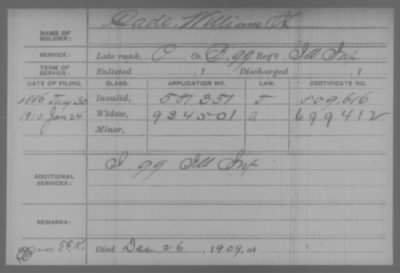 NAME OF SOLDIER: Dade, William H.
SERVICE: Late rank, C Co. B, 99 Reg't Ill Inf
TERM OF SERVICE: Enlisted , 1 Discharged , 1
DATE OF FILING. CLASS. APPLICATION NO. LAW. CERTIFICATE NO.
1886 30 Invalid, 581351 J 809616
1910 Jan 24 Widow, 934501 a 699412
Minor,
ADDITIONAL SERVICES: I 99 Ill Inf
REMARKS:
Died Dec 26, 1909, at